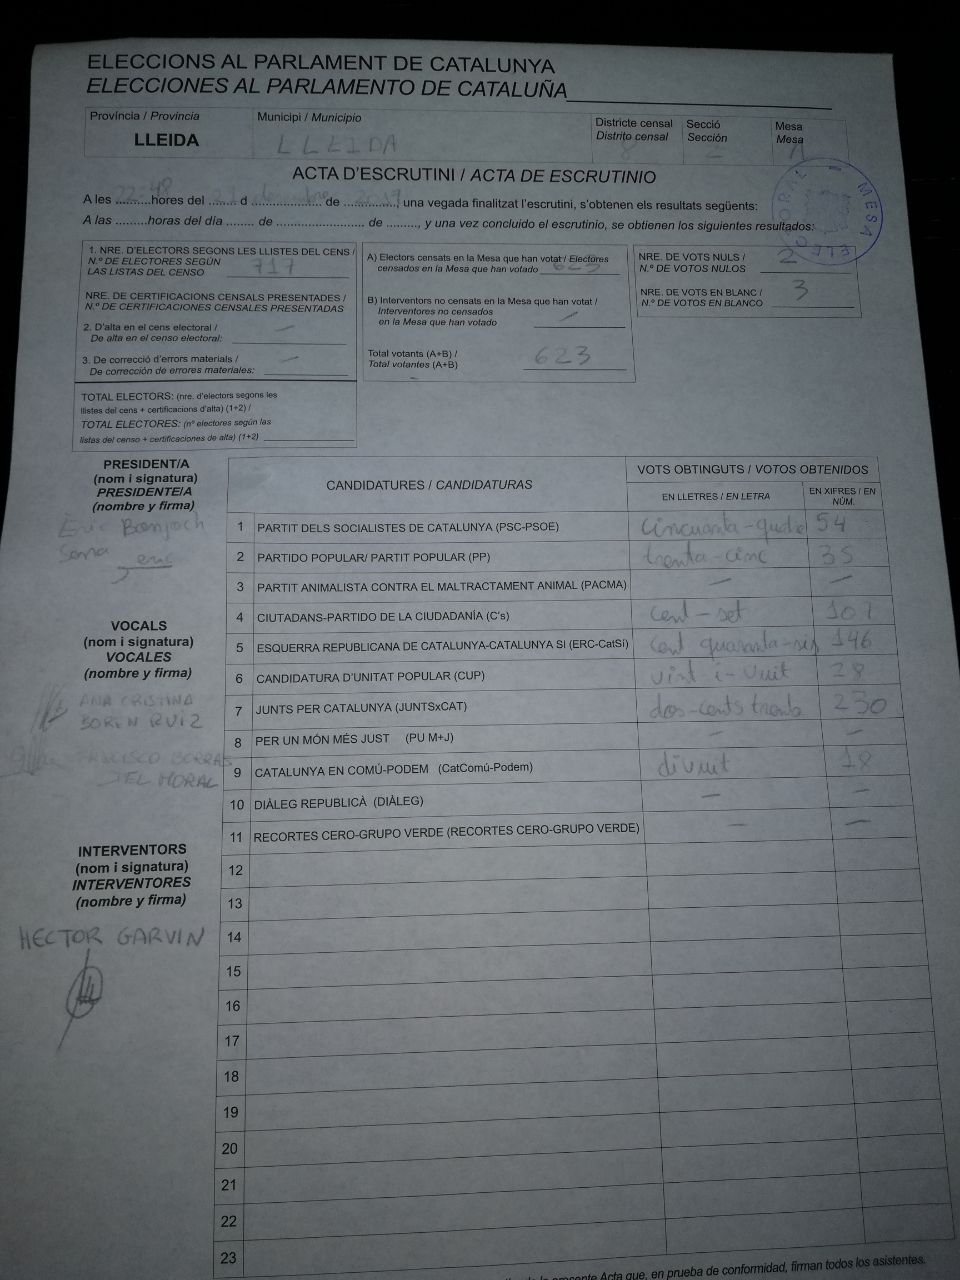 ELECCIONS AL PARLAMENT DE CATALUNYA
ELECCIONES AL PARLAMENTO DE CATALUÑA
Província / Provincia
LLEIDA
Municipi / Municipio
LLEIDA
Districte censal
Distrito censal
8
Secció
Sección
Mesa
Mesa
A
MESA ELECTORAL
ACTA D'ESCRUTINI / ACTA DE ESCRUTINIO
A les 22:48 hores del 21 d desembre de 2017, una vegada finalitzat l'escrutini, s'obtenen els resultats següents:
A las .........horas del día ........ de ........................... de ........., y una vez concluido el escrutinio, se obtienen los siguientes resultados:
1. NRE. D'ELECTORS SEGONS LES LLISTES DEL CENS /
N.º DE ELECTORES SEGÚN
LAS LISTAS DEL CENSO 717
NRE. DE CERTIFICACIONS CENSALS PRESENTADES /
N.º DE CERTIFICACIONES CENSALES PRESENTADAS
2. D'alta en el cens electoral /
De alta en el censo electoral: —
3. De correcció d'errors materials /
De corrección de errores materiales: —
TOTAL ELECTORS: (nre. d'electors segons les
llistes del cens + certificacions d'alta) (1+2) /
TOTAL ELECTORES: (nº electores según las
listas del censo + certificaciones de alta) (1+2)
A) Electors censats en la Mesa que han votat / Electores
censados en la Mesa que han votado 623
B) Interventors no censats en la Mesa que han votat /
Interventores no censados
en la Mesa que han votado —
Total votants (A+B) /
Total votantes (A+B) 623
NRE. DE VOTS NULS /
N.º DE VOTOS NULOS 2
NRE. DE VOTS EN BLANC /
N.º DE VOTOS EN BLANCO 3
PRESIDENT/A
(nom i signatura)
PRESIDENTE/A
(nombre y firma)
Èric Bonjoch
Serra
eric
VOCALS
(nom i signatura)
VOCALES
(nombre y firma)
ANA CRISTINA
BOREN RUIZ
FRANCISCO BORRAS
DEL MORAL
INTERVENTORS
(nom i signatura)
INTERVENTORES
(nombre y firma)
HECTOR GARVIN
CANDIDATURES / CANDIDATURAS
VOTS OBTINGUTS / VOTOS OBTENIDOS
EN LLETRES / EN LETRA
EN XIFRES / EN
NÚM.
1 PARTIT DELS SOCIALISTES DE CATALUNYA (PSC-PSOE) cincuanta-quatre 54
2 PARTIDO POPULAR/ PARTIT POPULAR (PP) trenta-cinc 35
3 PARTIT ANIMALISTA CONTRA EL MALTRACTAMENT ANIMAL (PACMA) — —
4 CIUTADANS-PARTIDO DE LA CIUDADANÍA (C's) cent-set 107
5 ESQUERRA REPUBLICANA DE CATALUNYA-CATALUNYA SI (ERC-CatSí) cent quaranta-sis 146
6 CANDIDATURA D'UNITAT POPULAR (CUP) vint-i-vuit 28
7 JUNTS PER CATALUNYA (JUNTSxCAT) dos-cents trenta 230
8 PER UN MÓN MÉS JUST (PU M+J) — —
9 CATALUNYA EN COMÚ-PODEM (CatComú-Podem) divuit 18
10 DIÀLEG REPUBLICÀ (DIÀLEG) — —
11 RECORTES CERO-GRUPO VERDE (RECORTES CERO-GRUPO VERDE) — —
12
13
14
15
16
17
18
19
20
21
22
23
presente Acta que, en prueba de conformidad, firman todos los asistentes.